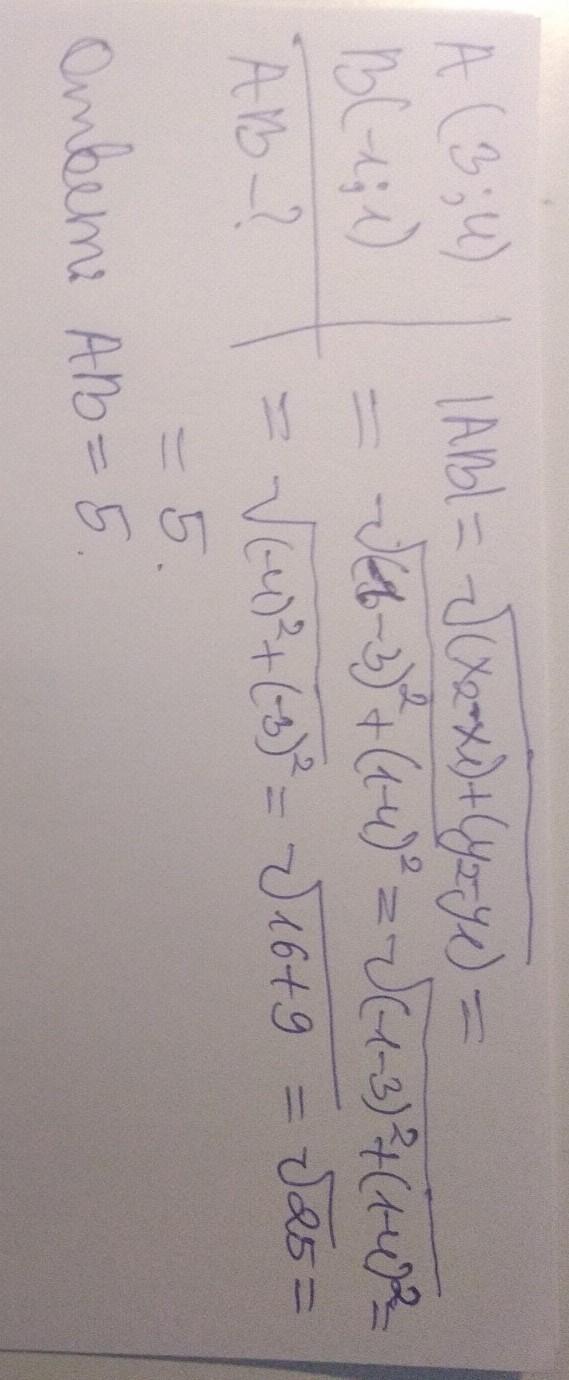 A (3; 4)
B(-1; 1)
AB-?
|AB| = √(x2-x1)+(y2-y1) =
= √( -3)² + (1-4)² = √(-1-3)²+(1-4)² =
= √(-4)²+(-3)² = √16+9 = √25 =
= 5.
Ответ: AB = 5.